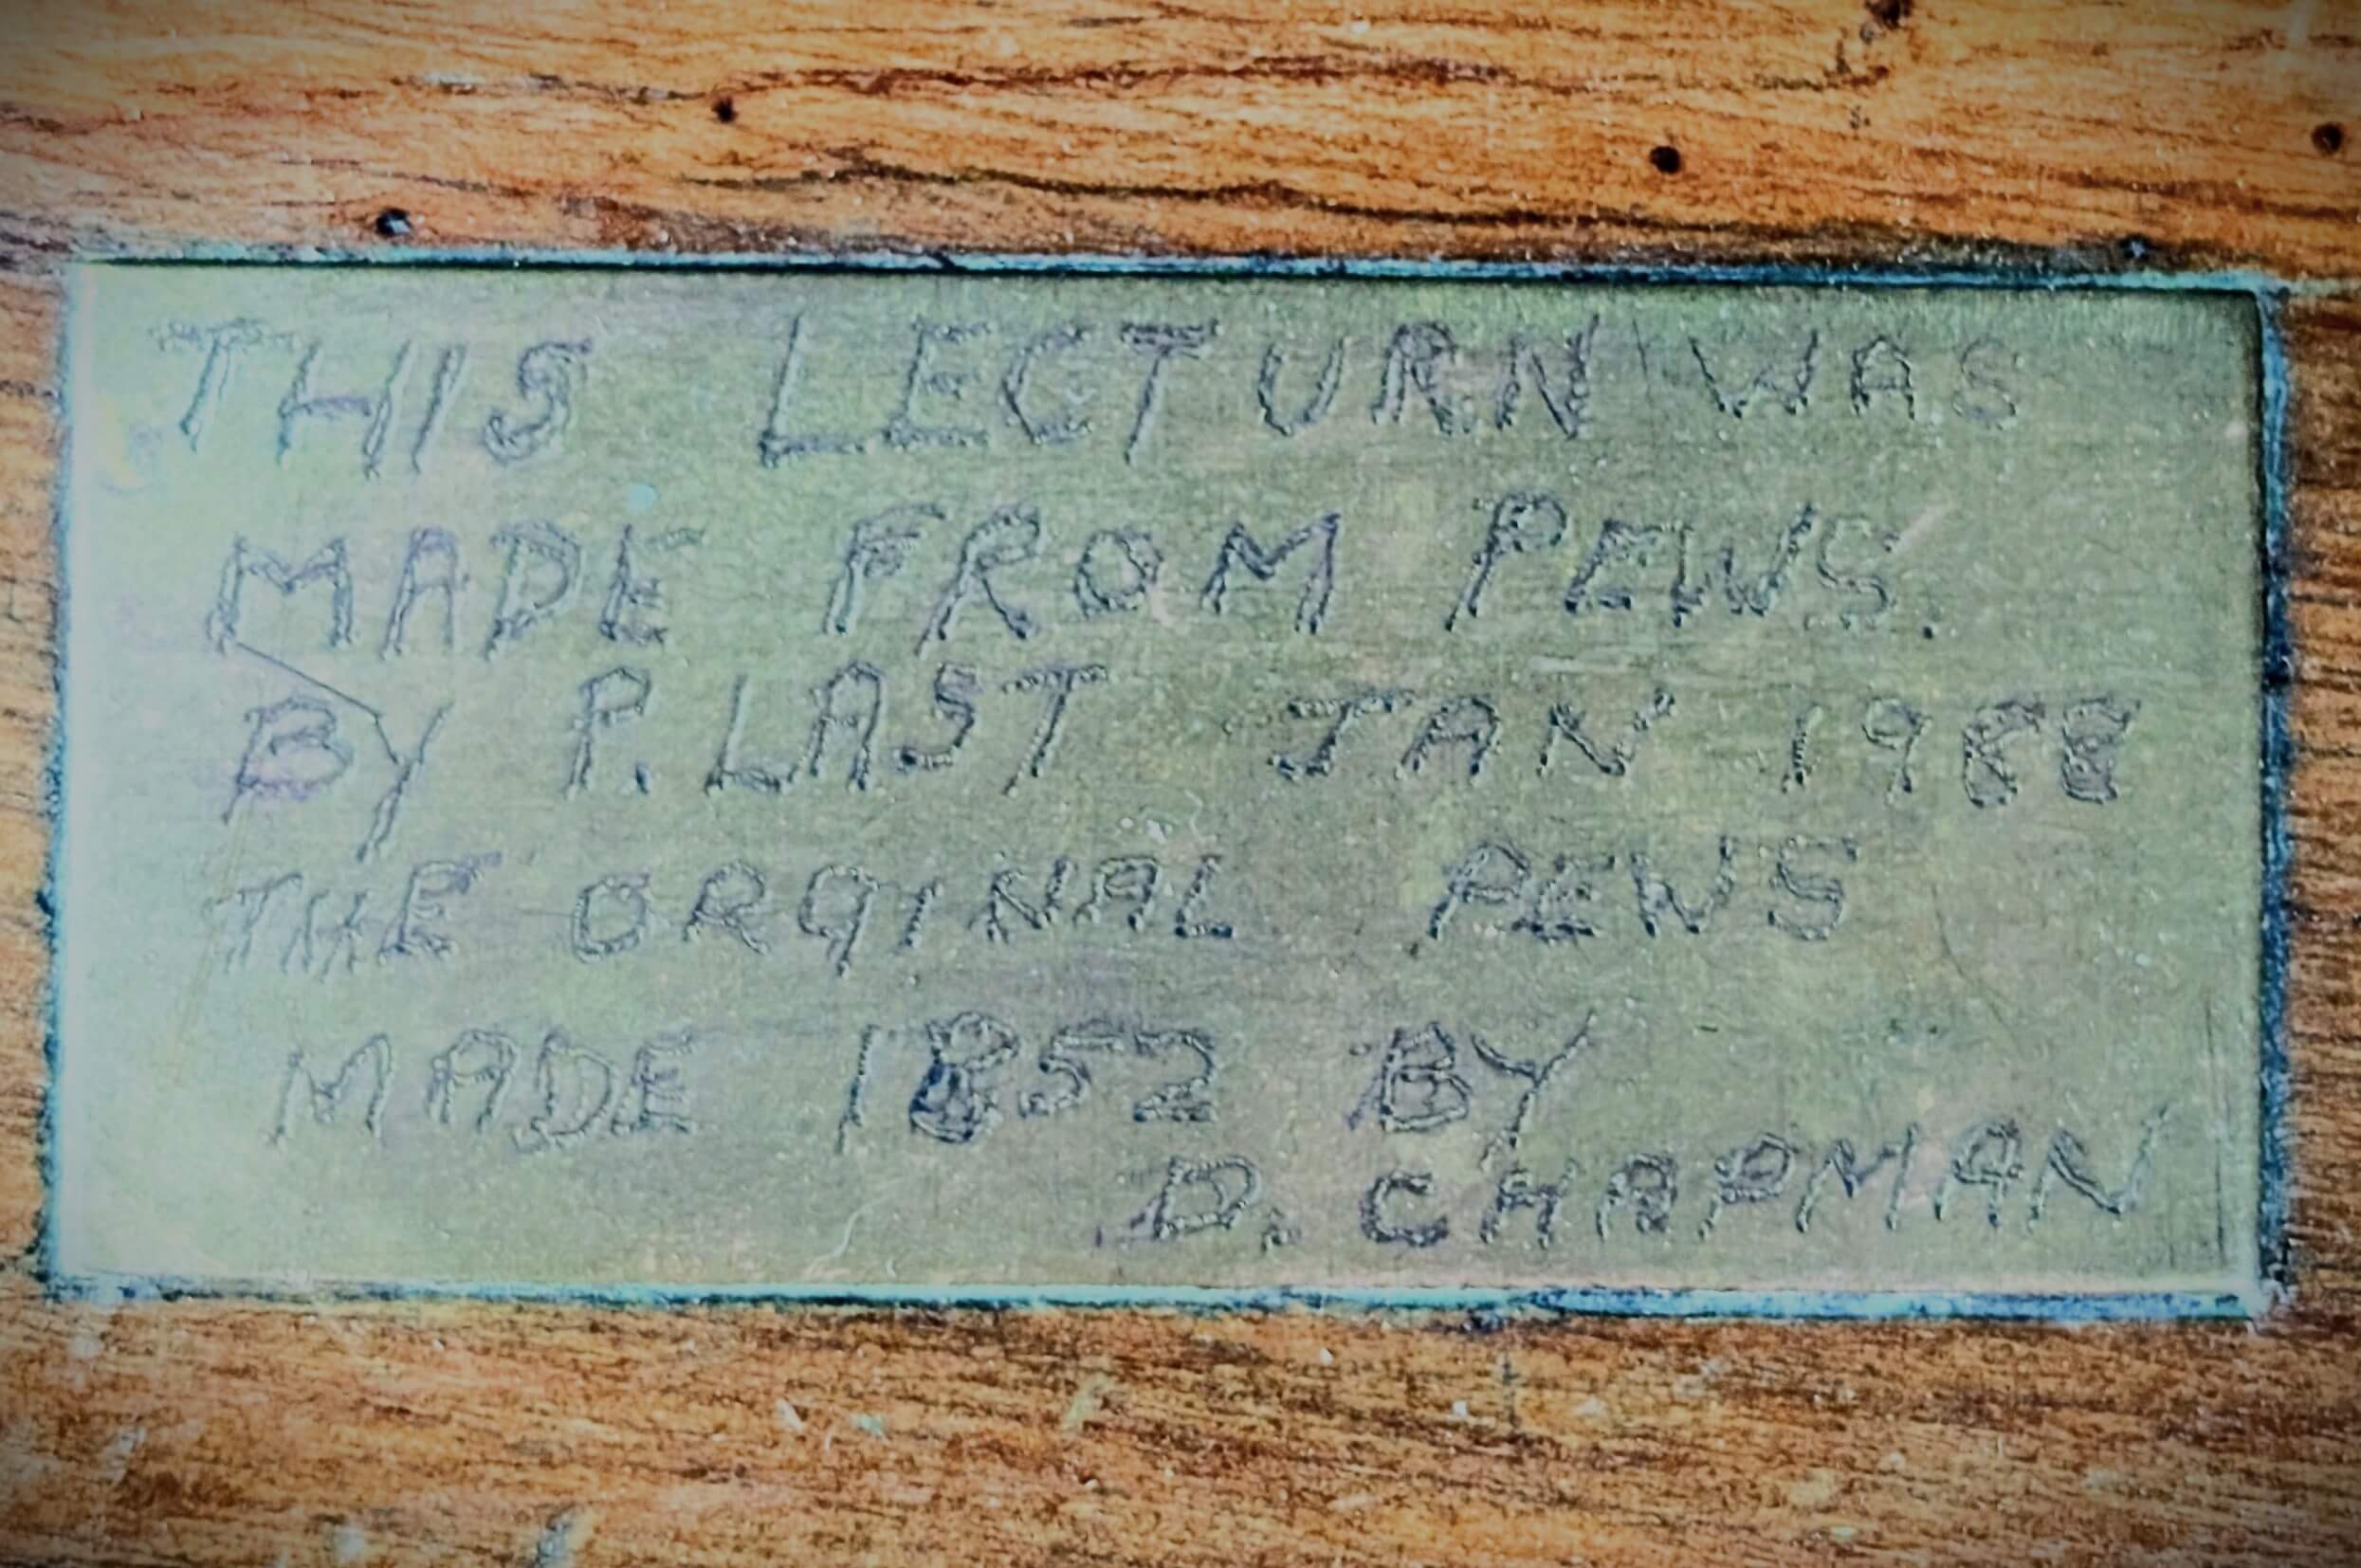 THIS LECTURN WAS
MADE FROM PEWS.
BY P. LAST JAN 1988
THE ORGINAL PEWS
MADE 1852 BY
D. CHAPMAN